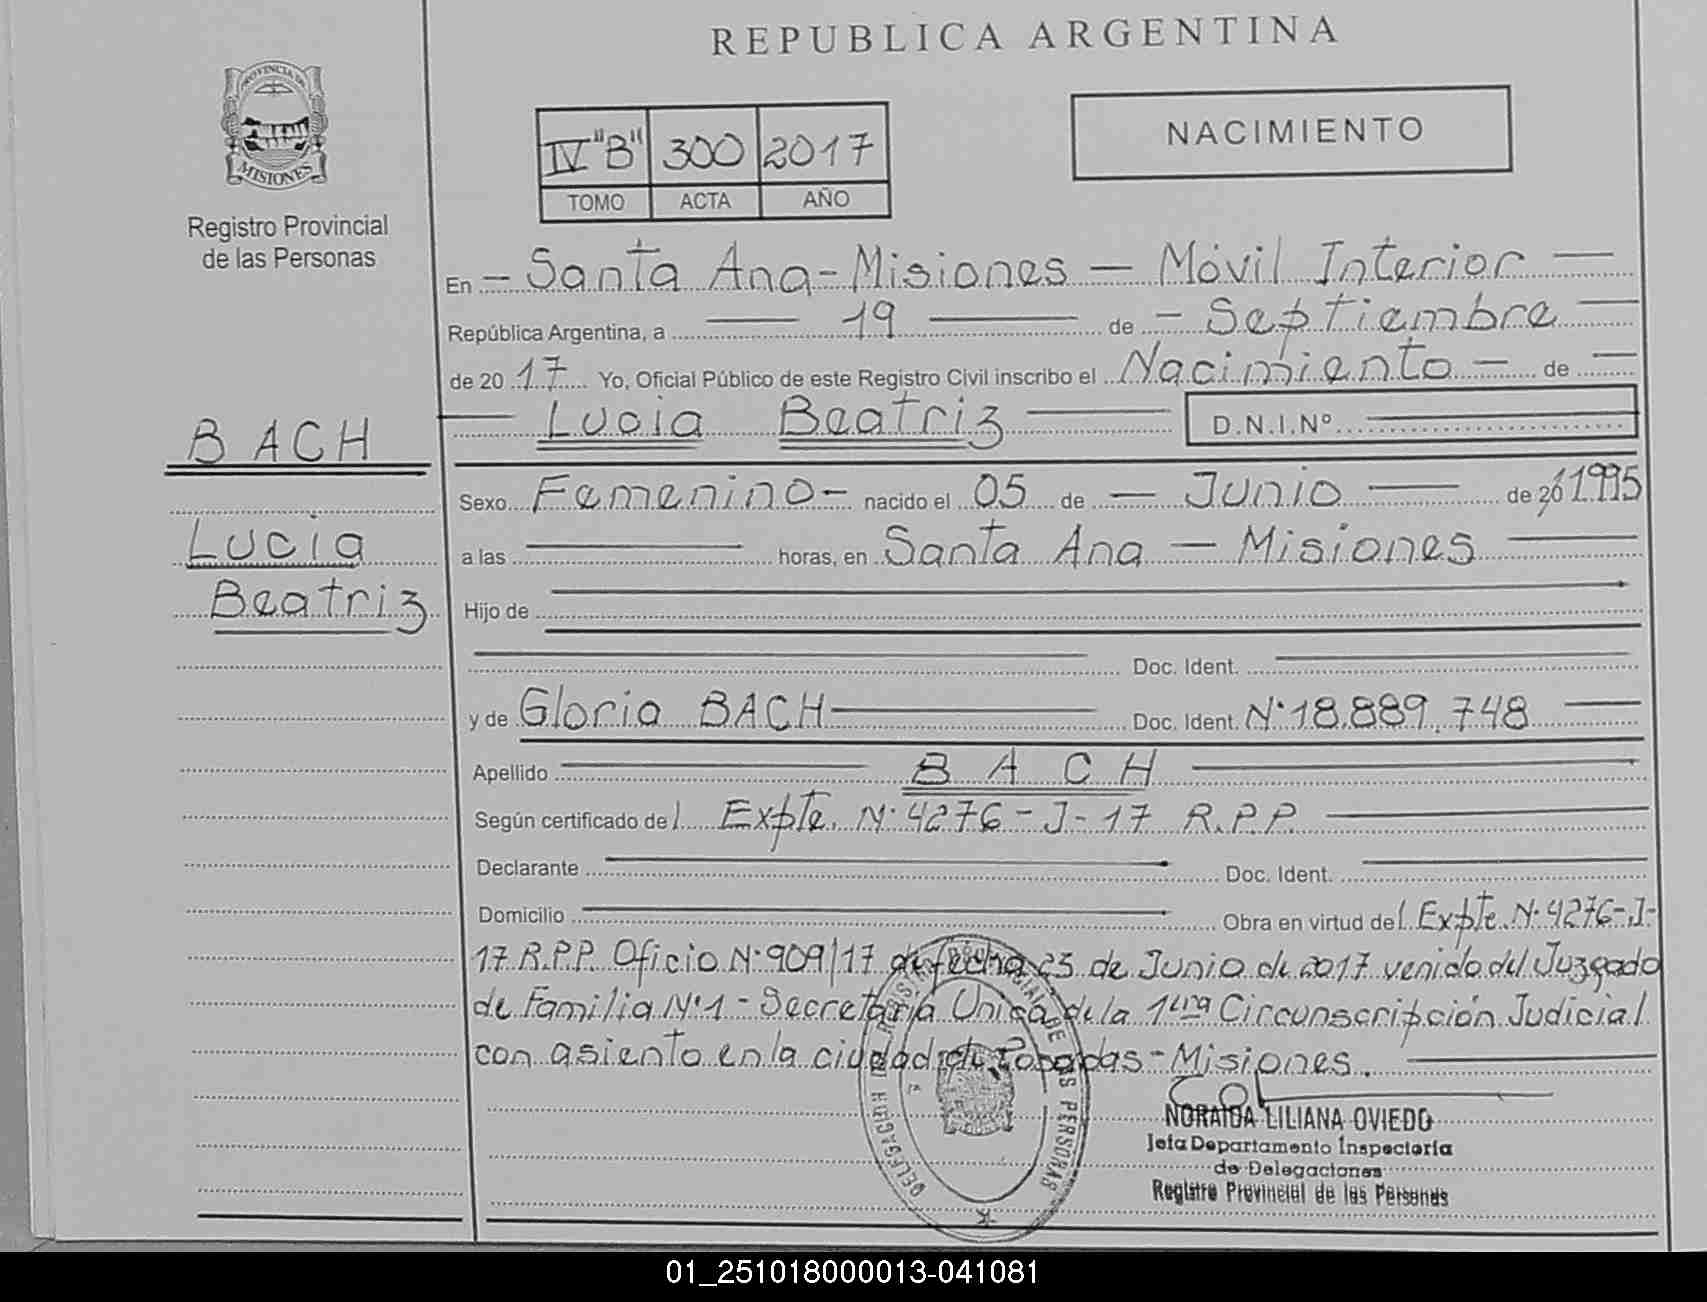 REPUBLICA ARGENTINA
PROVINCIA DE
MISIONES
Registro Provincial
de las Personas
IV "B" 300 2017
TOMO ACTA AÑO
NACIMIENTO
En - Santa Ana - Misiones - Móvil Interior -
República Argentina, a — 19 — de - Septiembre -
de 20 17 Yo, Oficial Público de este Registro Civil inscribo el Nacimiento - de -
— Lucia Beatriz — D.N.I.Nº
BACH
Lucia
Beatriz
Sexo Femenino - nacido el 05 de — Junio — de 20 1995
a las — horas, en Santa Ana - Misiones —
Hijo de —
— Doc. Ident. —
y de Gloria BACH — Doc. Ident. Nº 18.889.748 —
Apellido — BACH —
Según certificado del Expte. Nº 4276 - J - 17 R.P.P. —
Declarante — Doc. Ident. —
Domicilio — Obra en virtud del Expte. Nº 4276-J-
17 R.P.P. Oficio Nº 909/17 de fecha 23 de Junio de 2017 venido del Juzgado
de Familia Nº 1 - Secretaría Unica de la 1era Circunscripción Judicial
con asiento en la ciudad de Posadas - Misiones. —
NORAIDA LILIANA OVIEDO
Jefa Departamento Inspectoria
de Delegaciones
Registro Provincial de las Personas
01_251018000013-041081